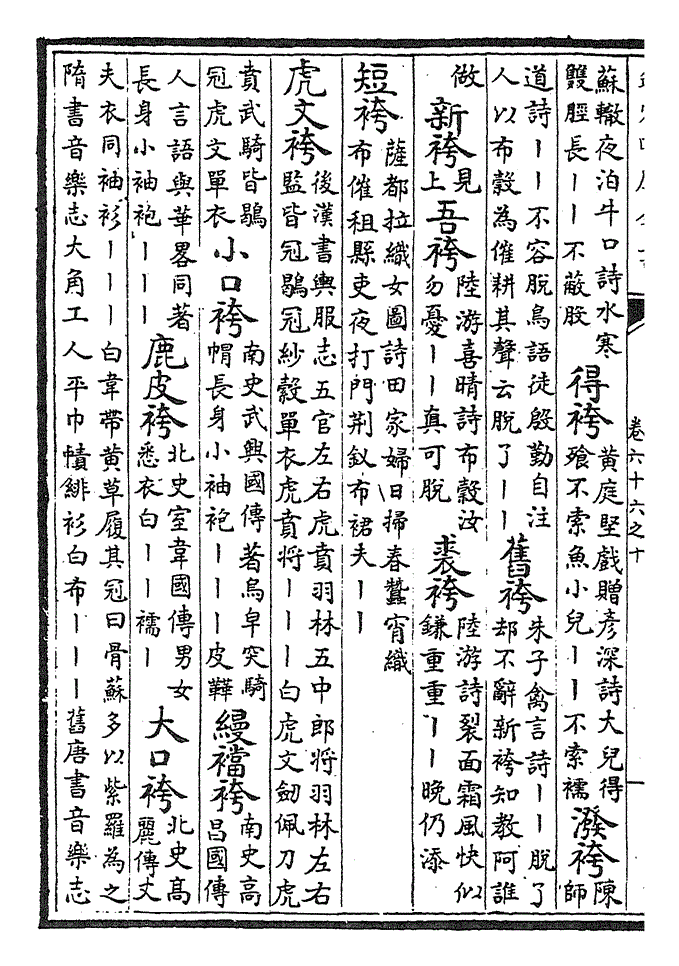 卷六十六之十
蘇轍夜泊牛口詩水寒
雙脛長丨丨不蔽股
得袴
黄庭堅戲贈彦深詩大兒得
飱不索魚小兒丨丨不索襦
潑袴
陳
師
道詩丨丨不容脱鳥語徒殷勤自注
人以布穀為催耕其聲云脱了丨丨
舊袴
朱子禽言詩丨丨脱了
却不辭新袴知教阿誰
做
新袴
見
上
吾袴
陸游喜晴詩布穀汝
勿憂丨丨真可脱
裘袴
陸游詩裂面霜風快似
鎌重重丨丨晚仍添
短袴
薩都拉織女圖詩田家婦日掃春蠶宵織
布催租縣吏夜打門荆釵布裙夫丨丨
虎文袴
後漢書輿服志五官左右虎賁羽林五中郎將羽林左右
監皆冠鶡冠紗縠單衣虎賁將丨丨丨白虎文劒佩刀虎
賁武騎皆鶡
冠虎文單衣
小口袴
南史武興國傳著烏皁突騎
帽長身小袖袍丨丨丨皮鞾
縵襠袴
南史高
昌國傳
人言語與華畧同著
長身小袖袍丨丨丨
鹿皮袴
北史室韋國傳男女
悉衣白丨丨襦丨
大口袴
北史髙
麗傳丈
夫衣同袖衫丨丨丨白韋帶黄草履其冠曰骨蘇多以紫羅為之
隋書音樂志大角工人平巾幘緋衫白布丨丨丨舊唐書音樂志